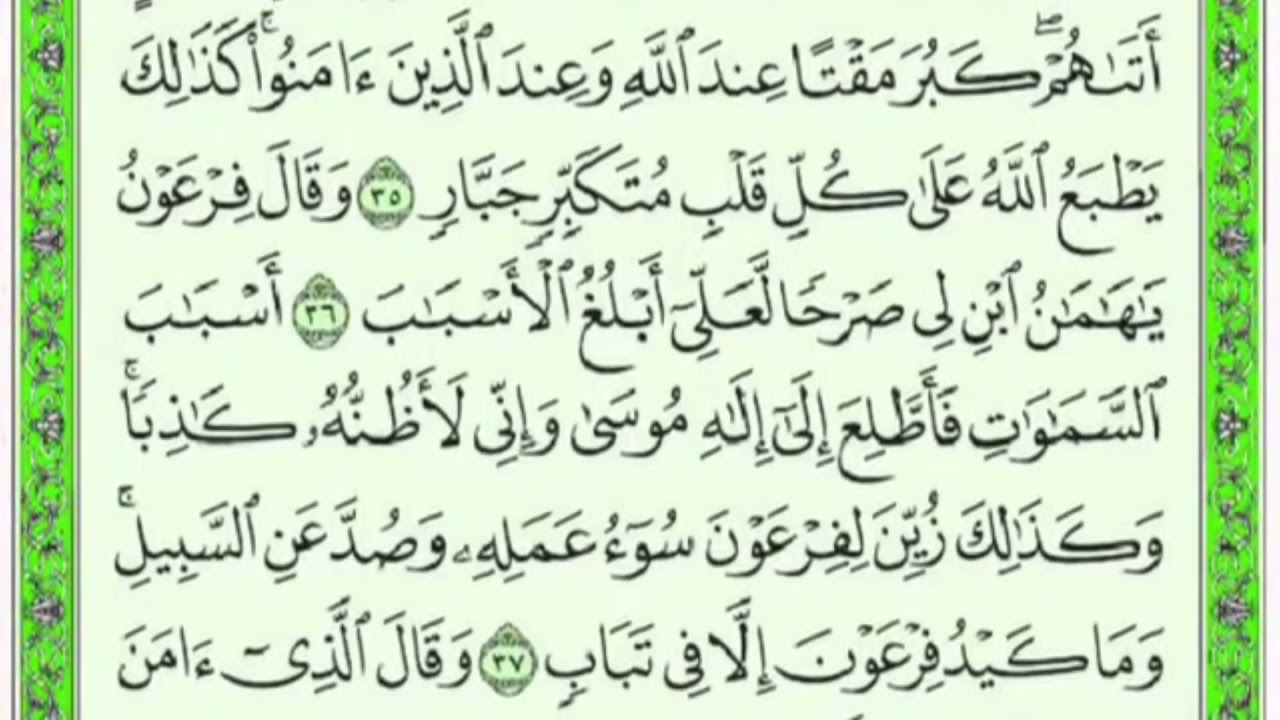 أَتَىٰهُمْ ۖ كَبُرَ مَقْتًا عِندَ ٱللَّهِ وَعِندَ ٱلَّذِينَ ءَامَنُوا۟ ۚ كَذَٰلِكَ
يَطْبَعُ ٱللَّهُ عَلَىٰ كُلِّ قَلْبِ مُتَكَبِّرٍ جَبَّارٍ ٣٥ وَقَالَ فِرْعَوْنُ
يَٰهَٰمَٰنُ ٱبْنِ لِى صَرْحًا لَّعَلِّىٓ أَبْلُغُ ٱلْأَسْبَٰبَ ٣٦ أَسْبَٰبَ
ٱلسَّمَٰوَٰتِ فَأَطَّلِعَ إِلَىٰٓ إِلَٰهِ مُوسَىٰ وَإِنِّى لَأَظُنُّهُۥ كَٰذِبًا ۚ
وَكَذَٰلِكَ زُيِّنَ لِفِرْعَوْنَ سُوٓءُ عَمَلِهِۦ وَصُدَّ عَنِ ٱلسَّبِيلِ ۚ
وَمَا كَيْدُ فِرْعَوْنَ إِلَّا فِى تَبَابٍ ٣٧ وَقَالَ ٱلَّذِىٓ ءَامَنَ